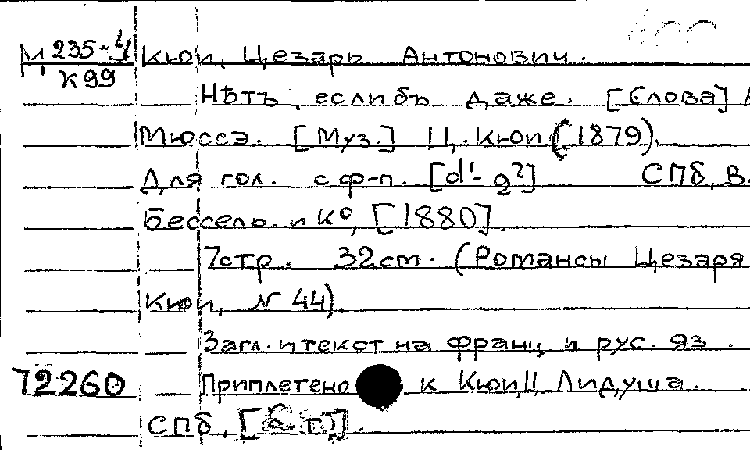 М 235-4 Кюи, Цезарь Антонович.
К99
Нѣтъ, если бъ даже. [Слова]
Мюссэ. [Муз.] Ц. Кюи (1879).
Для гол. с ф-п. [d¹- g²] СПб, В.
Бессель и Kº, [1880].
7стр. 32см. (Романсы Цезаря
Кюи, № 44)
Загл. и текст на франц. и рус. яз.
72260 Приплетено к Кюи, Ц. Лидуша.
СПб,